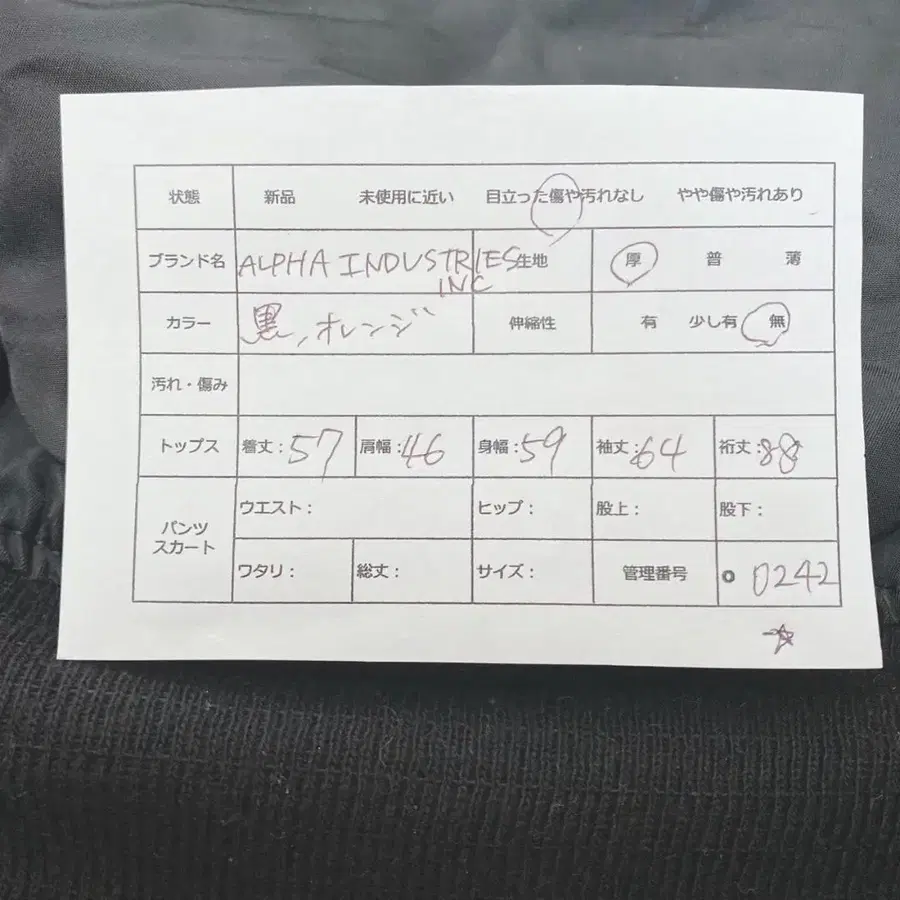 状態 新品 未使用に近い 目立った傷や汚れなし やや傷や汚れあり
ブランド名 ALPHA INDUSTRIES INC 生地 厚 普 薄
カラー 黒、オレンジ 伸縮性 有 少し有 無
汚れ・傷み
トップス 着丈:57 肩幅:46 身幅:59 袖丈:64 裄丈:88
パンツ スカート ウエスト: ヒップ: 股上: 股下:
ワタリ: 総丈: サイズ: 管理番号 0242